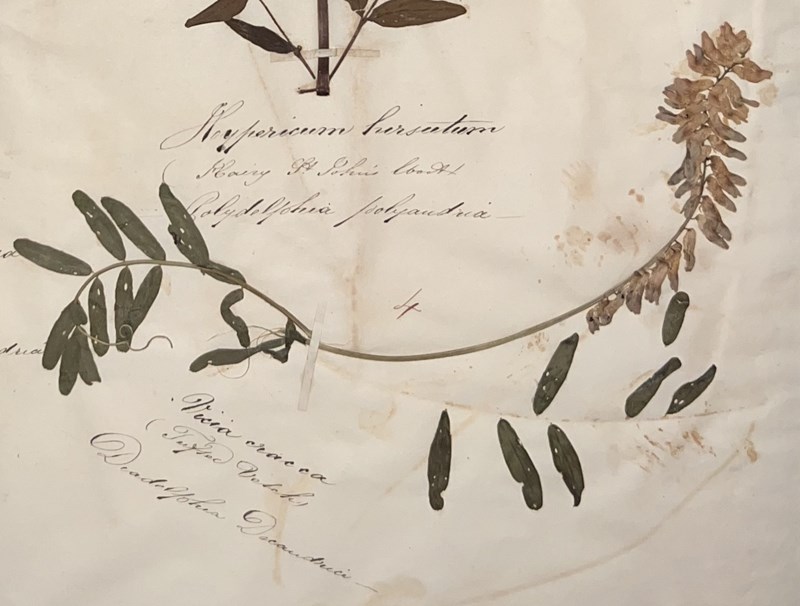 Hypericum hirsutum
Hairy St John's Wort
Polydelphia polyandria
4
Vicia cracca
(Tufted Vetch)
Diadelphia Decandria